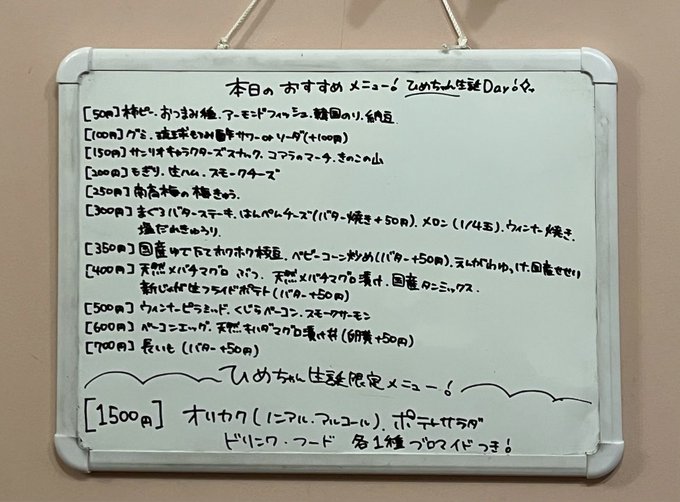 本日の おすすめ メニュー! ひめちゃん生誕Day!☆
[50円] 柿ピー、おつまみ種、アーモンドフィッシュ、韓国のり、納豆
[100円] グミ、琉球もろみ酢サワー or ソーダ(+100円)
[150円] サンリオキャラクターズスナック、コアラのマーチ、きのこの山
[200円] もぎり、生ハム、スモークチーズ
[250円] 南高梅の梅きゅう、
[300円] まぐろバターステーキ、はんぺんチーズ(バター焼き+50円)、メロン(1/4玉)、ウィンナー焼き、
塩だれきゅうり、
[350円] 国産ゆでたてホクホク枝豆、ベビーコーン炒め(バター+50円)、えんがわゆっけ、国産せせり
[400円] 天然メバチマグロ ぶつ、天然メバチマグロ漬け、国産タンミックス、
新じゃが生フライドポテト(バター+50円)
[500円] ウィンナーピラミッド、くじらベーコン、スモークサーモン
[600円] ベーコンエッグ、天然キハダマグロ漬け丼(卵黄+50円)
[700円] 長いも(バター+50円)
ひめちゃん生誕限定メニュー!
[1500円] オリカク(ノンアル、アルコール)、ポテトサラダ
ドリンク・フード 各1種ブロマイドつき!